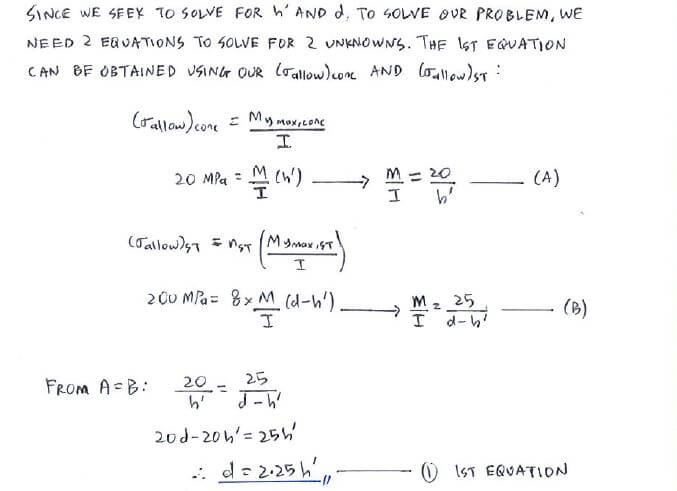 SINCE WE SEEK TO SOLVE FOR h' AND d, TO SOLVE OUR PROBLEM, WE
NEED 2 EQUATIONS TO SOLVE FOR 2 UNKNOWNS. THE 1ST EQUATION
CAN BE OBTAINED USING OUR (σallow)conc AND (σallow)ST :
(σallow)conc = M ymax,conc / I
20 MPa = M/I (h') ⟶ M/I = 20/h' —— (A)
(σallow)ST = nST (M ymax,ST / I)
200 MPa = 8 x M/I (d-h') ⟶ M/I = 25/(d-h') —— (B)
FROM A=B: 20/h' = 25/(d-h')
20d-20h' = 25h'
∴ d = 2.25h' —— ① 1ST EQUATION